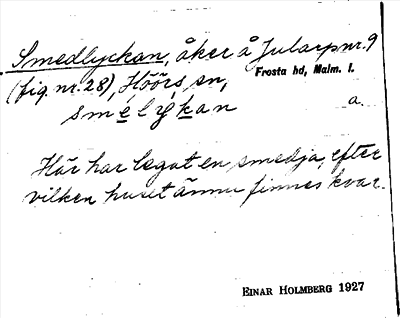 Smedlyckan, åker å Jularp nr. 9
Frosta hd, Malm. l.
(fig. nr. 28), Höörs sn,
smelykan a.
Här har legat en smedja, efter
vilken huset ännu finnes kvar.
EINAR HOLMBERG 1927